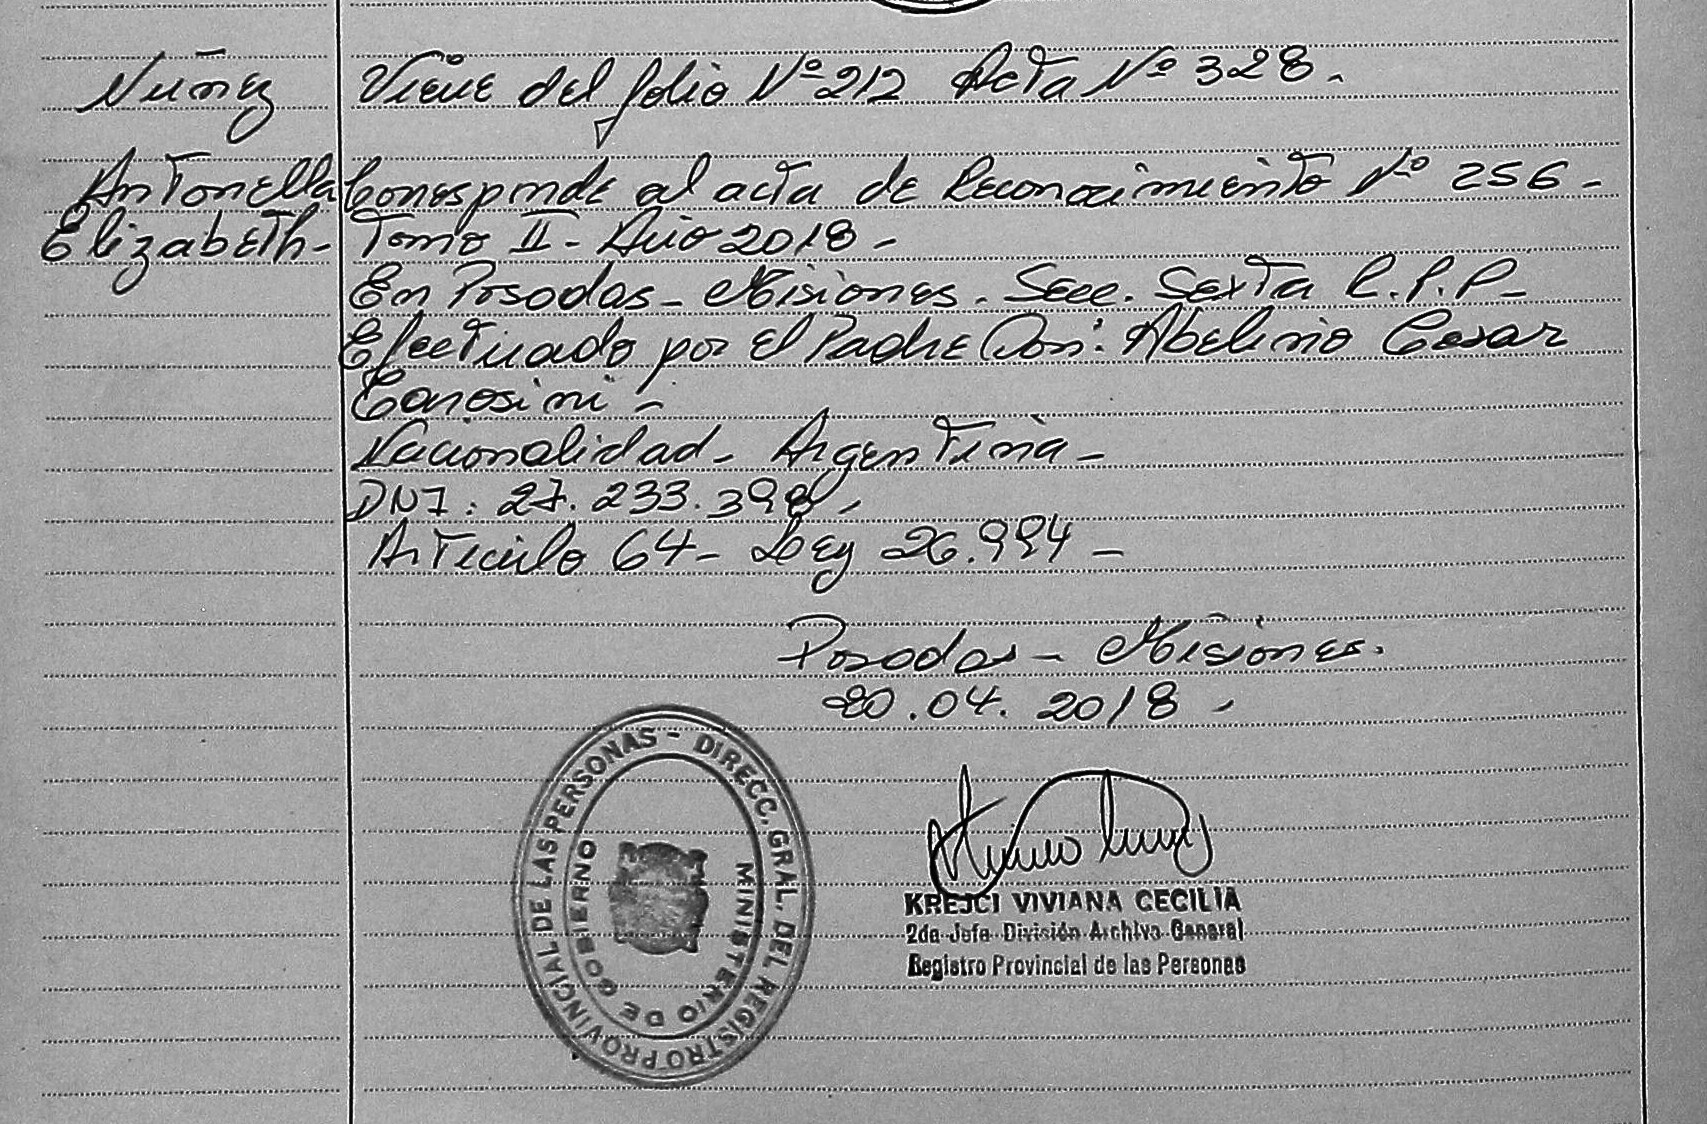 Nuñez
Antonella
Elizabeth-
Viene del folio Nº 212 Acta Nº 328.
Corresponde al acta de Reconocimiento Nº 256-
Tomo II - Año 2018-
En Posadas - Misiones. Secc. Sexta R.P.P-
Efectuado por el Padre Don: Abelino Cesar
Nacionalidad - Argentina-
DNI: 27.233.398-
Articulo 64 - Ley 26.994-
Posadas - Misiones.
20.04.2018-
DIRECC. GRAL. DEL REGISTRO PROVINCIAL DE LAS PERSONAS -
MINISTERIO DE GOBIERNO
KREJCI VIVIANA CECILIA
2da Jefa División Archivo General
Registro Provincial de las Personas